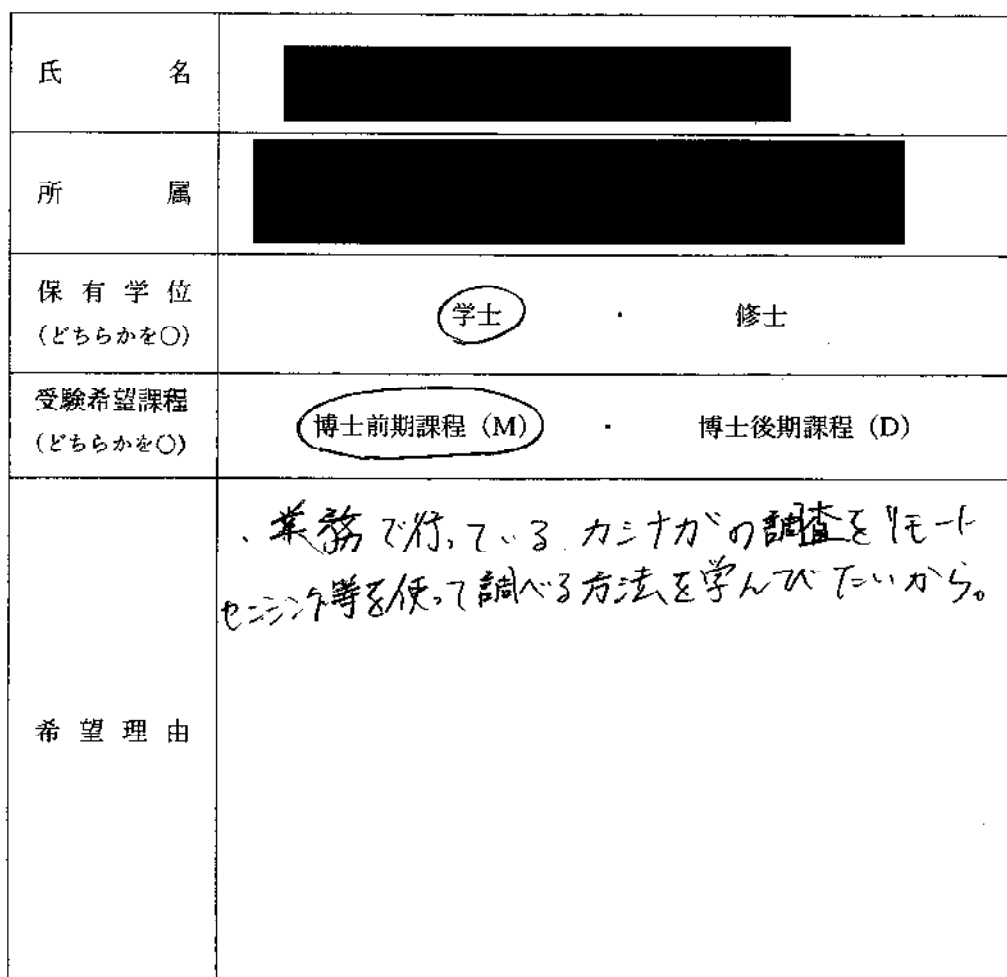 氏 名
所 属
保有学位
(どちらかを○)
学士 ・ 修士
受験希望課程
(どちらかを○)
博士前期課程（M） ・ 博士後期課程（D）
希望理由
・業務で行っている カシナガの調査をリモート
センシング等を使って調べる方法を学んびたいから。